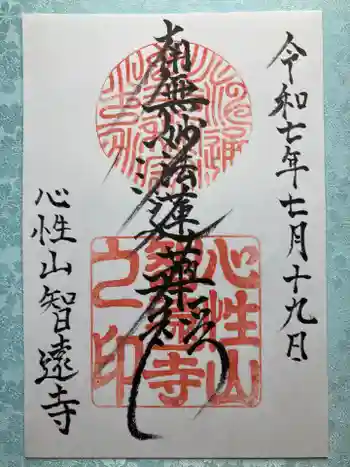 令和七年七月十九日
南無妙法蓮華経
心性山智遠寺
心性山
智遠寺
之印